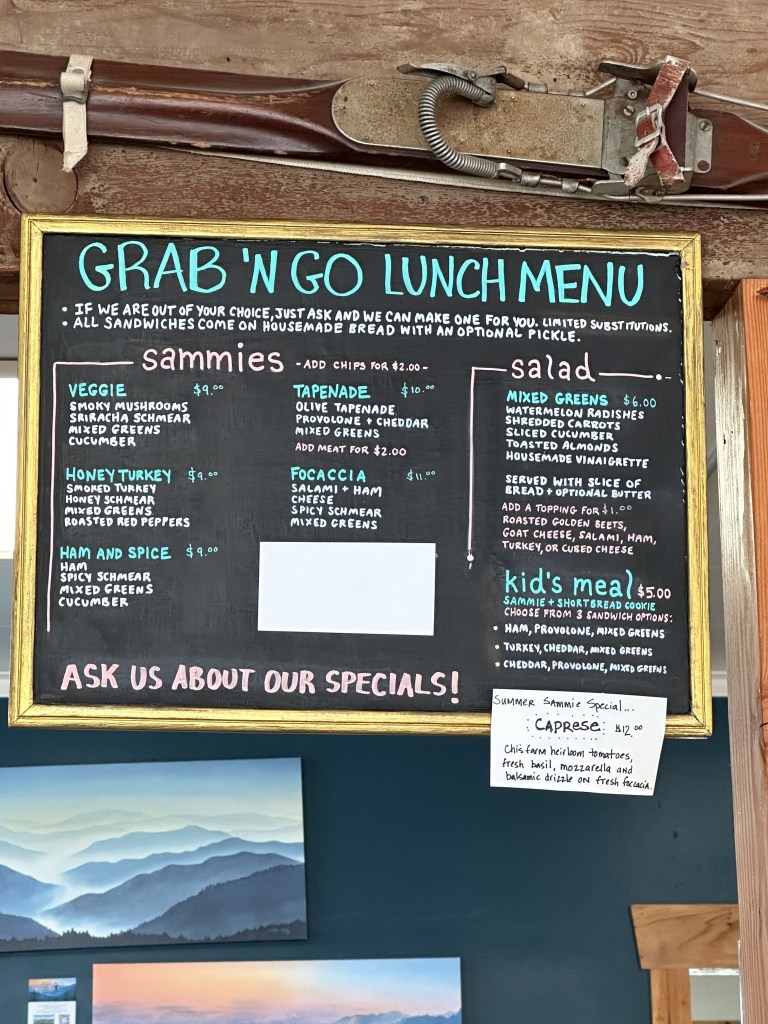 GRAB 'N GO LUNCH MENU
• IF WE ARE OUT OF YOUR CHOICE, JUST ASK AND WE CAN MAKE ONE FOR YOU. LIMITED SUBSTITUTIONS.
• ALL SANDWICHES COME ON HOUSEMADE BREAD WITH AN OPTIONAL PICKLE.
sammies - ADD CHIPS FOR $2.00 -
VEGGIE $9.00
SMOKY MUSHROOMS
SRIRACHA SCHMEAR
MIXED GREENS
CUCUMBER
HONEY TURKEY $9.00
SMOKED TURKEY
HONEY SCHMEAR
MIXED GREENS
ROASTED RED PEPPERS
HAM AND SPICE $9.00
HAM
SPICY SCHMEAR
MIXED GREENS
CUCUMBER
TAPENADE $10.00
OLIVE TAPENADE
PROVOLONE + CHEDDAR
MIXED GREENS
ADD MEAT FOR $2.00
FOCACCIA $11.00
SALAMI + HAM
CHEESE
SPICY SCHMEAR
MIXED GREENS
salad
MIXED GREENS $6.00
WATERMELON RADISHES
SHREDDED CARROTS
SLICED CUCUMBER
TOASTED ALMONDS
HOUSEMADE VINAIGRETTE
SERVED WITH SLICE OF
BREAD + OPTIONAL BUTTER
ADD A TOPPING FOR $1.00
ROASTED GOLDEN BEETS,
GOAT CHEESE, SALAMI, HAM,
TURKEY, OR CUBED CHEESE
kid's meal $5.00
SAMMIE + SHORTBREAD COOKIE
CHOOSE FROM 3 SANDWICH OPTIONS:
• HAM, PROVOLONE, MIXED GREENS
• TURKEY, CHEDDAR, MIXED GREENS
• CHEDDAR, PROVOLONE, MIXED GREENS
ASK US ABOUT OUR SPECIALS!
Summer Sammie Special...
CAPRESE $12.00
Chisfarm heirloom tomatoes,
fresh basil, mozzarella and
balsamic drizzle on fresh foccacia.